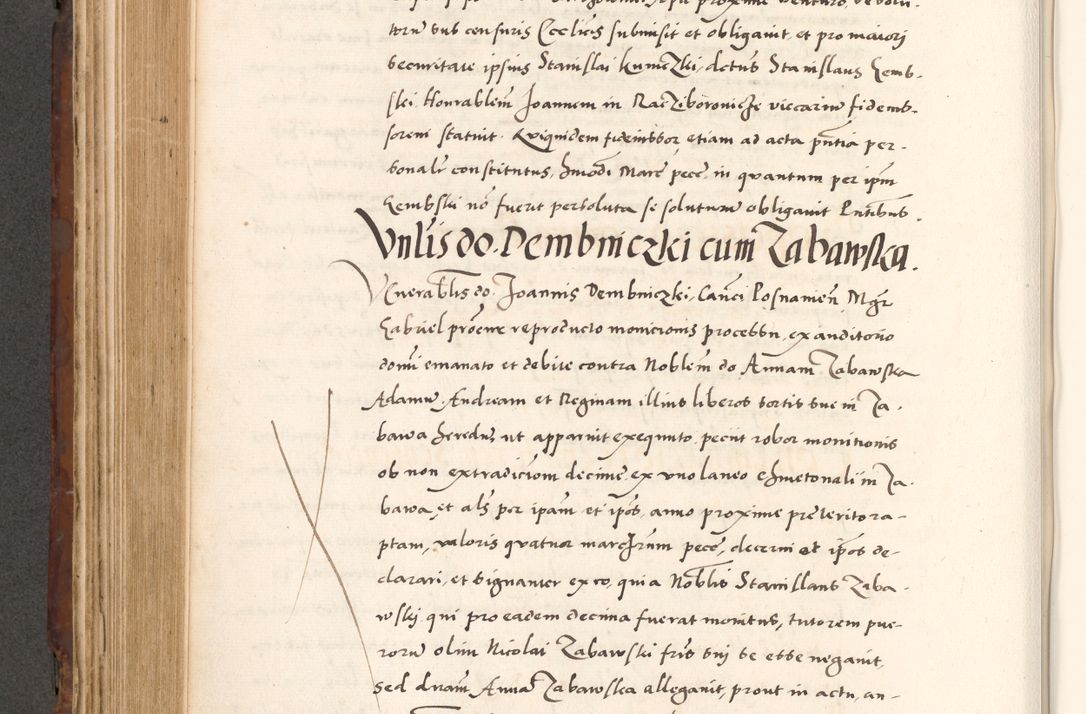 torū sub censuris Ecclīcis submisit et obligauit, et pro maiori
securitate ipsius Stanislai Kuniczki, dictus Stanislaus Gemb-
ski. Honrablem̄ Joannem in Racziboronicze viccariū fideius-
sorem statuit. Quiquidem fideiussor, etiam ad acta pn̄tia per-
sonalr̄ constitutus, hmōdi Marc̄ pecc̄, in quantum per ipm̄
Gembski nō fuerit persoluta se soluturū obligauit Pn̄tibus.
Vnlīs do. Dembniczki cum Zabawska.
Venerablīs do. Joannis Dembniczki, Canc̄i Posnanien̄, Mgr̄
Gabriel procne reproducto monicionis processu, ex auditorio
domī emanato et debite contra Noblem̄ do Annam Zabawska
Adamū, Andream et Reginam illius liberos sortis sue in Za-
bawa heredū, ut apparuit exequuto, peciit robor monitionis
ob non extradiciom̄ decime, ex uno laneo chmetonali in Za-
bawa, et als̄ per ipam̄ et ipōs, anno proxime preterito ra-
ptam, valoris quatuor marcarum pecc̄, decerni et ipōs de-
clarari, et signanter ex eo, quia Noblīs Stanislaus Zaba-
wski, qui pro eadem decima fuerat monitus, tutorem pue-
rorū olim Nicolai Zabawski frīs sui se esse negauit,
sed dnam̄ Annā Zabawska allegauit, prout in actu, an-